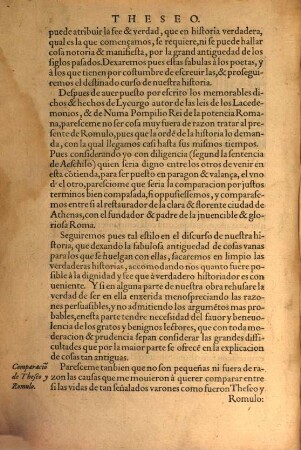 THESEO.
puede atribuir la fee & verdad, que en historia verdadera,
qual es la que començamos, se requiere, ni se puede hallar
cosa notoria & manifiesta, por la grand antiguedad de los
siglos pasados. Dexaremos pues estas fabulas à los poetas, y
à los que tienen por costumbre de escreuir las, & prosegui-
remos el destinado curso de nuestra historia.
Despues de auer puesto por escrito los memorables di-
chos & hechos de Lycurgo autor de las leis de los Lacede-
monios, & de Numa Pompilio Rei de la potencia Roma-
na, paresceme no ser cosa muy fuera de razon tratar al pre-
sente de Romulo, pues que la ordé de la historia lo deman-
da, con la qual llegamos casi hasta sus mismos tiempos.
Pues considerando yo con diligencia (segund la sentencia
de Aeschilo) quien seria digno entre los otros de venir en
esta cõtienda, para ser puesto en paragon & valança, el vno
de el otro, paresciome que seria la comparacion por justos
terminos bien compasada, si oppusiessemos, y comparase-
mos entre si al restaurador de la clara & florente ciudad de
Athenas, con el fundador & padre de la inuencible & glo-
riosa Roma.
Seguiremos pues tal estilo en el discurso de nuestra hi-
storia, que dexando la fabulosa antiguedad de cosas vanas
para los que se huelgan con ellas, sacaremos en limpio las
verdaderas historias, accomodando nos quanto fuere pos-
sible à la dignidad y fee que à verdadero historiador es con
ueniente. Y si en alguna parte de nuestra obra rehusare la
verdad de ser en ella enxerida menospreciando las razo-
nes persuasibles, y no admitiendo los argumétos mas pro-
bables, en esta parte tendré necessidad del fauor y beneuo-
lencia de los gratos y benignos lectores, que con toda mo-
deracion & prudencia sepan considerar las grandes diffi-
cultades que por la maior parte se ofrecé en la explicacion
de cosas tan antiguas.
Comparació
de Theseo y
Romulo.
Paresceme tanbien que no son pequeñas ni fuera de ra-
zon las causas que me mouieron à querer comparar entre
si las vidas de tan señalados varones como fueron Theseo y
Romulo: